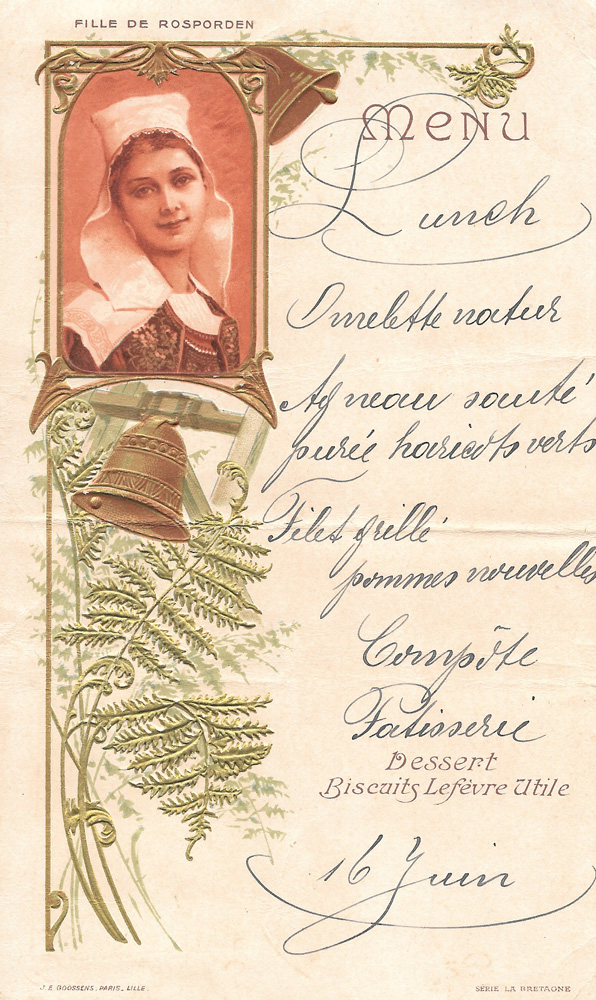 FILLE DE ROSPORDEN
MENU
Lunch
Omelette natur
Agneau sauté
purée haricots verts
Filet grillé
pommes nouvelles
Compôte
Patisserie
Dessert
Biscuits Lefèvre Utile
16 Juin
J. E GOOSSENS. PARIS_ LILLE.
SÉRIE LA BRETAGNE